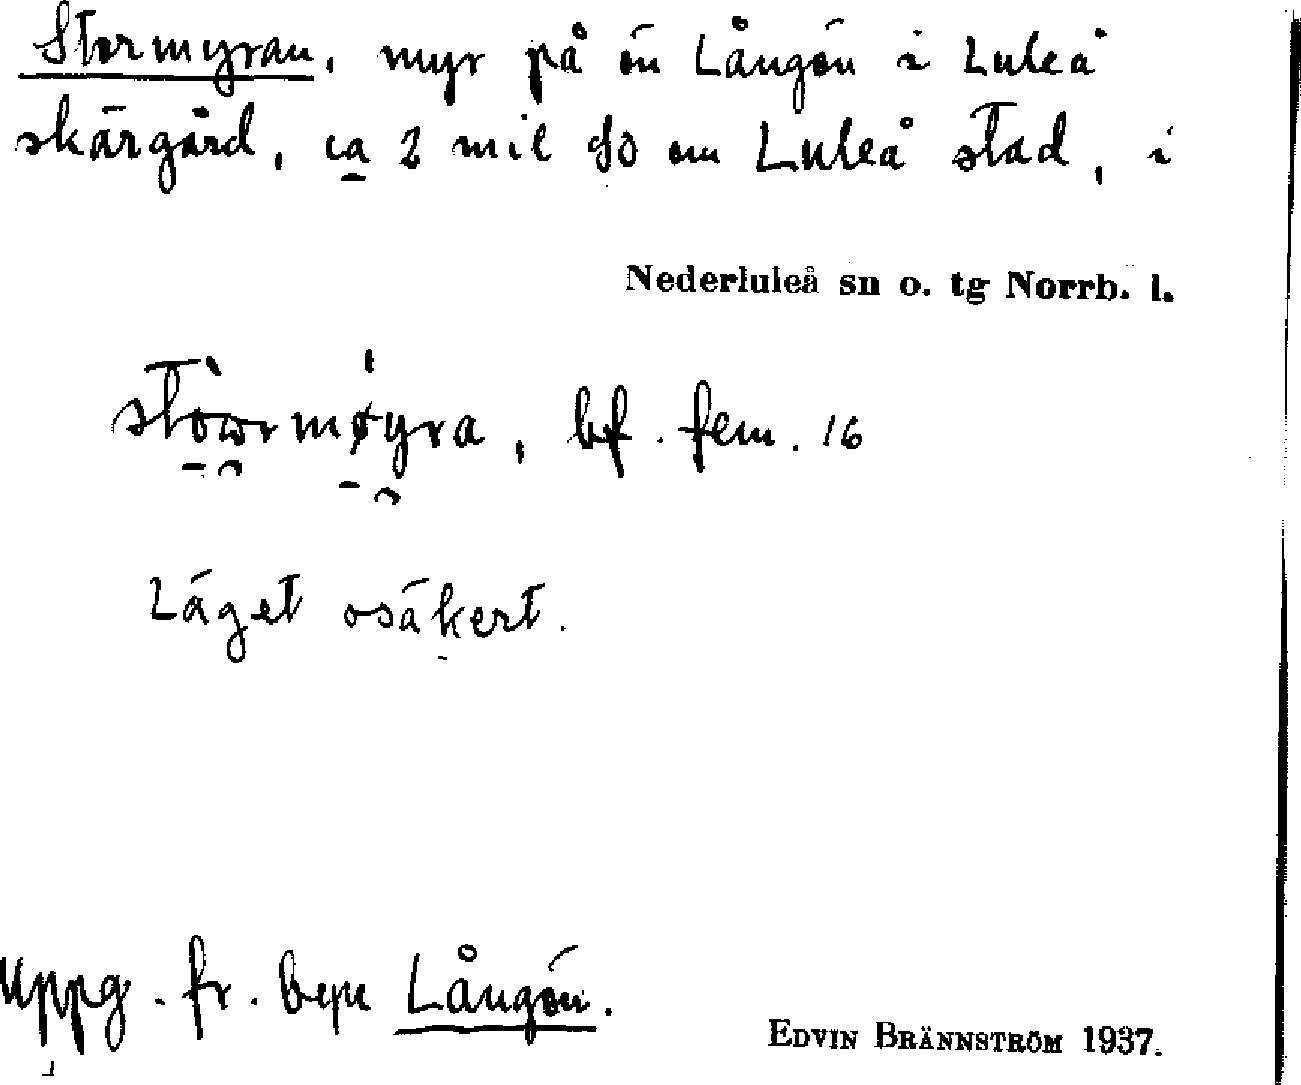 Stormyran, myr på ön Långön i Luleå
skärgård, ca 2 mil SO om Luleå stad, i
Nederluleå sn o. tg Norrb. l.
bf. fem. 16
Läget osäkert.
Uppg. fr. byn Långön.
EDVIN BRÄNNSTRÖM 1937.